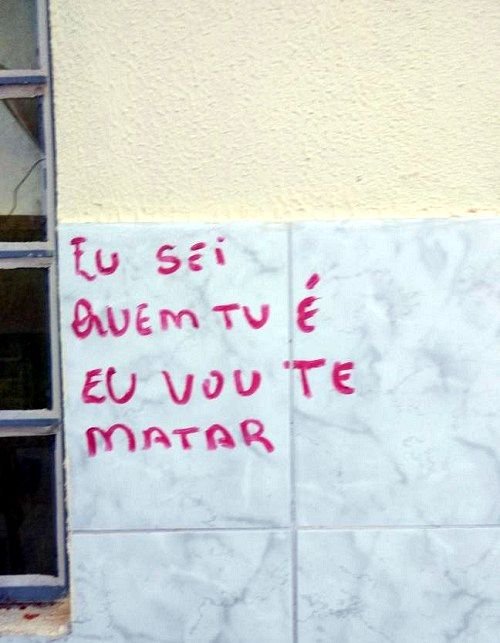 EU SEi
QUEM TU É
EU VOU TE
MATAR